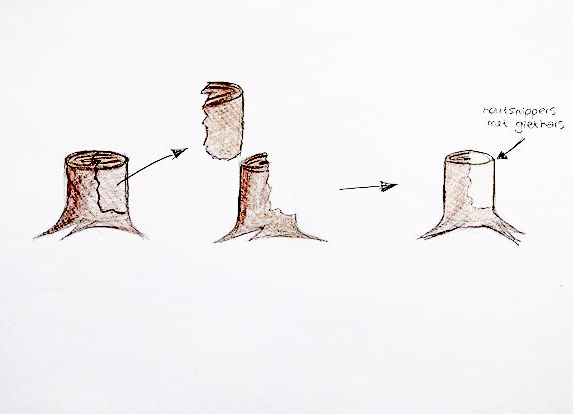 houtsnippers
met giethars